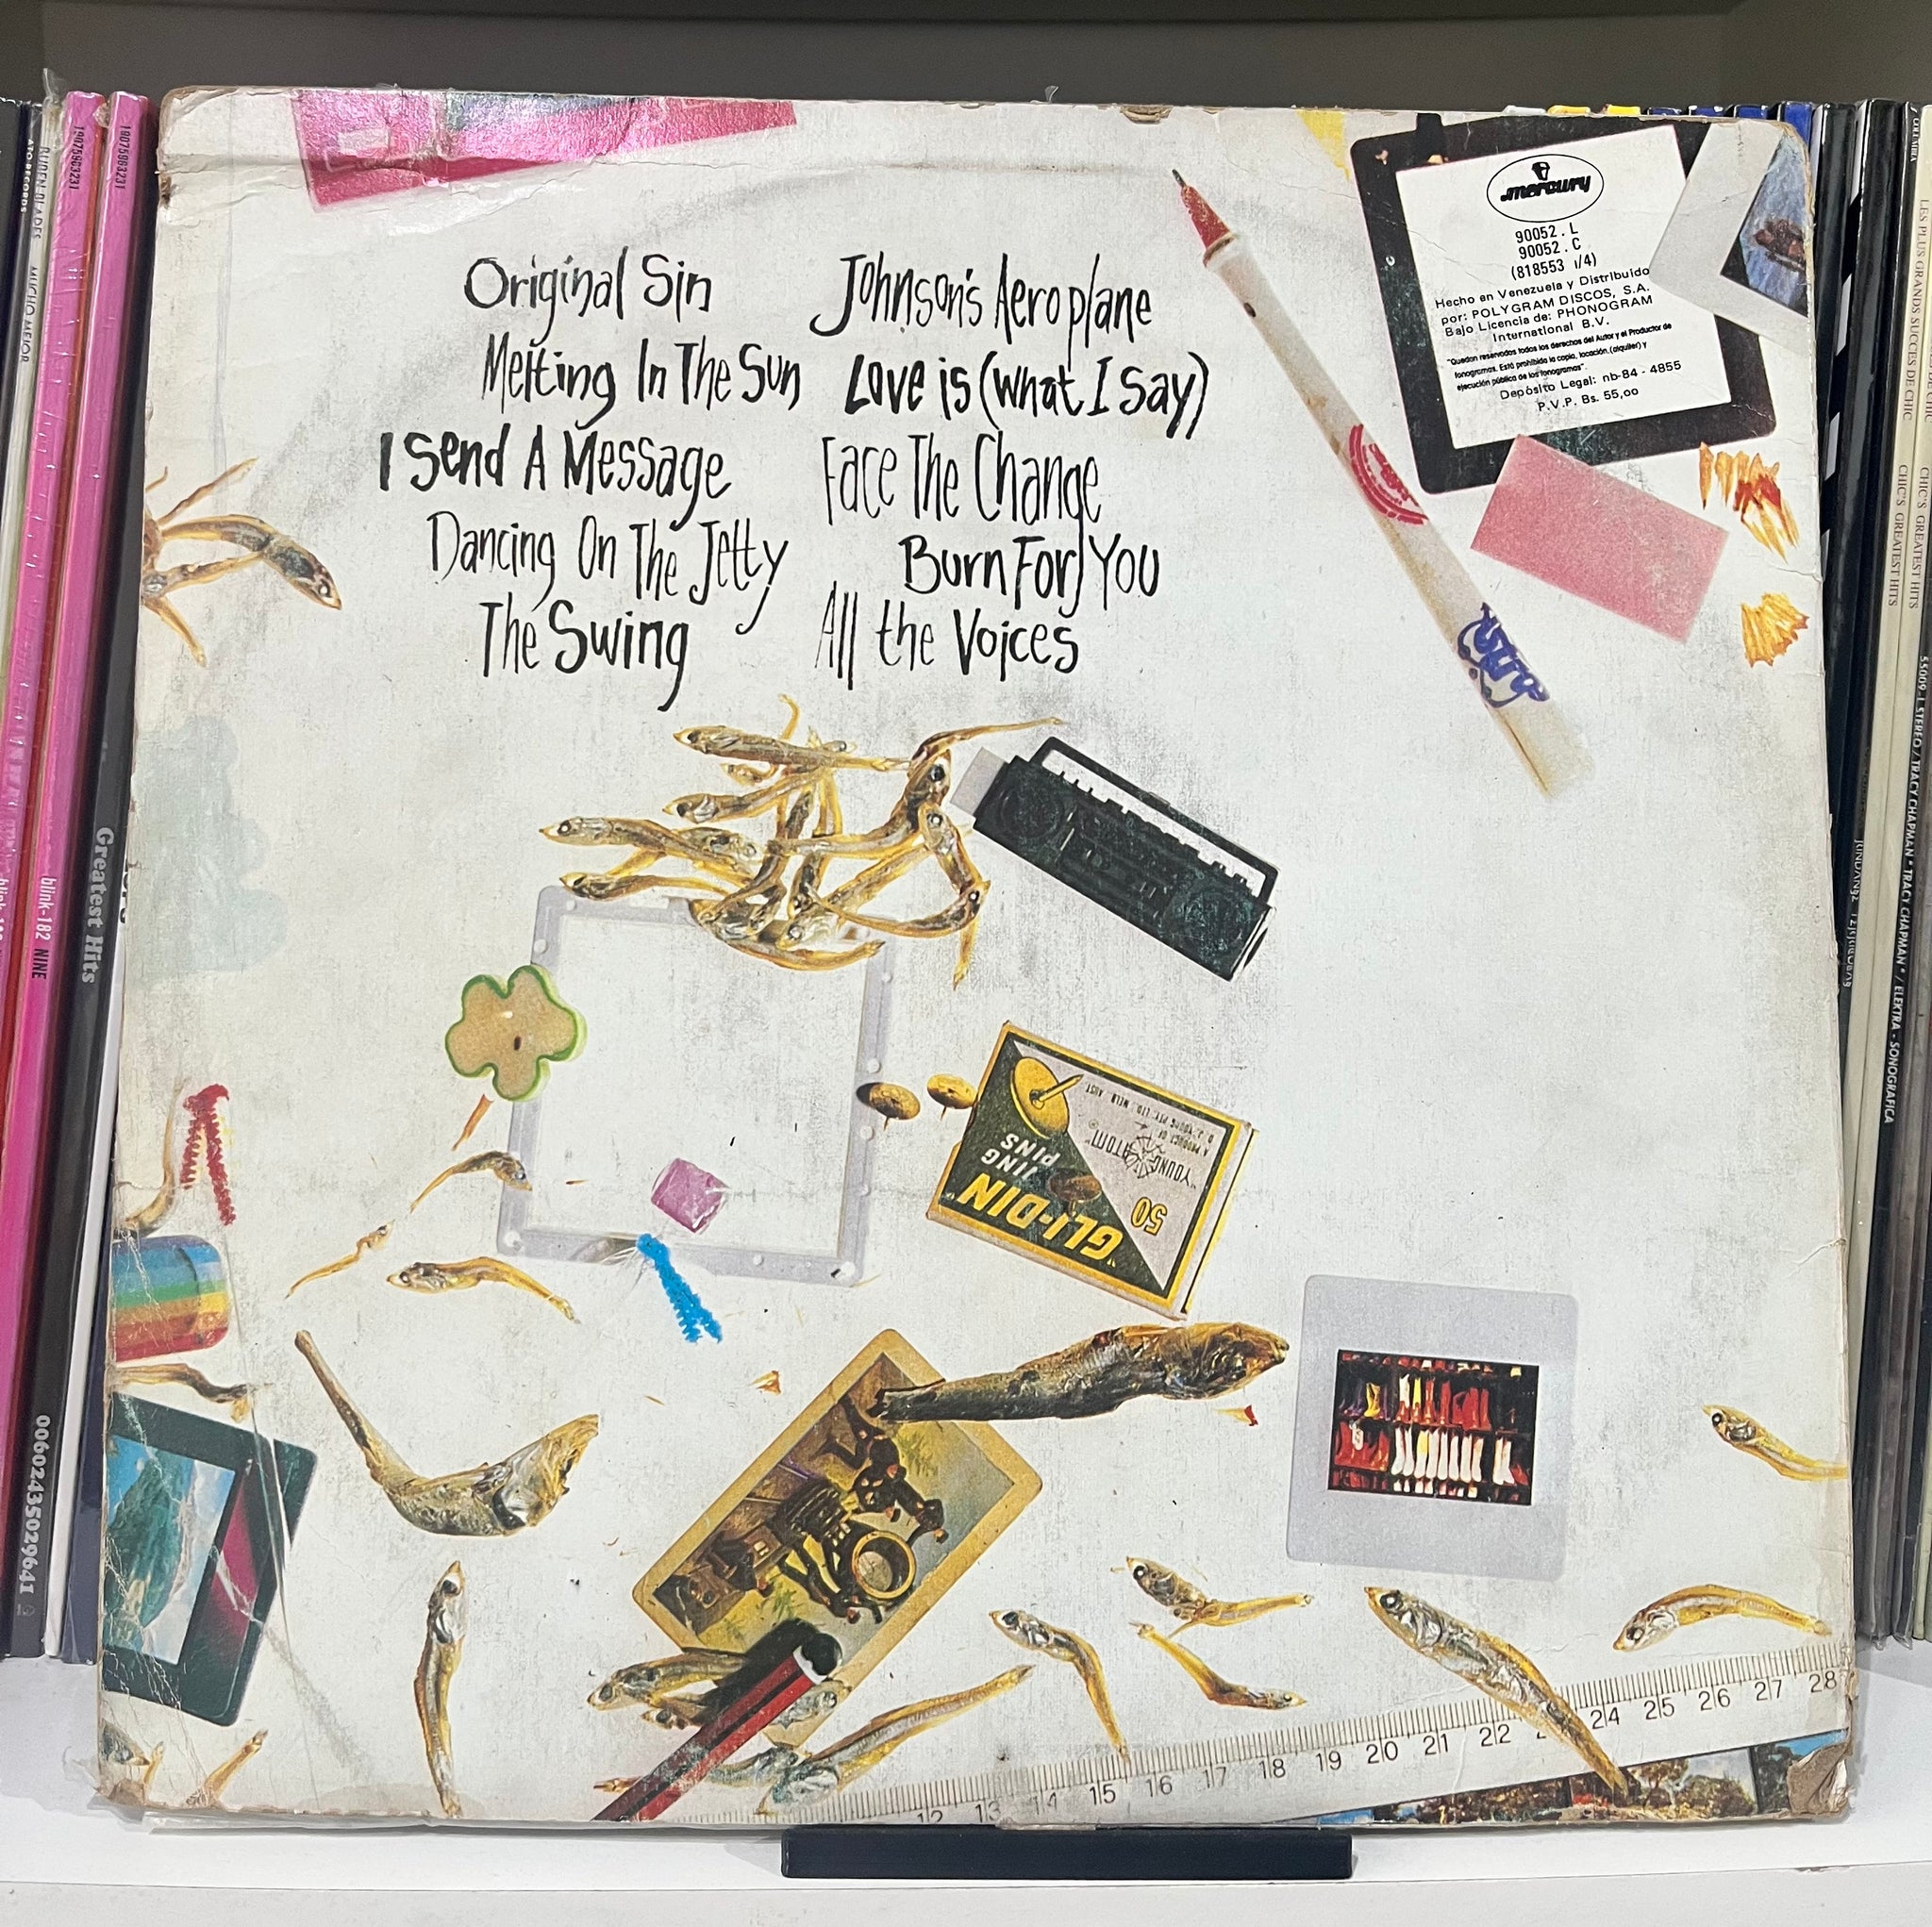 Original Sin
Melting In The Sun
I Send A Message
Dancing On The Jetty
The Swing
Johnson's Aeroplane
Love is (what I Say)
Face The Change
Burn For You
All the Voices
mercury
90052 . L
90052 . C
(818553 1/4)
Hecho en Venezuela y Distribuido
por: POLYGRAM DISCOS, S.A.
Bajo Licencia de: PHONOGRAM
International B.V.
"Quedan reservados todos los derechos del Autor y el Productor de
fonogramas. Está prohibida la copia, locación, (alquiler) y
ejecución pública de los fonogramas".
Depósito Legal: nb-84 - 4855
P.V.P. Bs. 55,oo
"GLI-DIN"
PINS
50
"YOUNG ATOM"
A PRODUCT OF
12 13 14 15 16 17 18 19 20 21 22 24 25 26 27 28
19075963231
19075963231
RUBEN BLADES
MUCHO MEJOR
ATO RECORDS
blink-182 NINE
Greatest Hits
00602435029641
COLUMBIA
LES PLUS GRANDS SUCCES DE CHIC
CHIC'S GREATEST HITS
CHIC'S GREATEST HITS
55009-L STEREO / TRACY CHAPMAN • TRACY CHAPMAN • / ELEKTRA - SONOGRAFICA